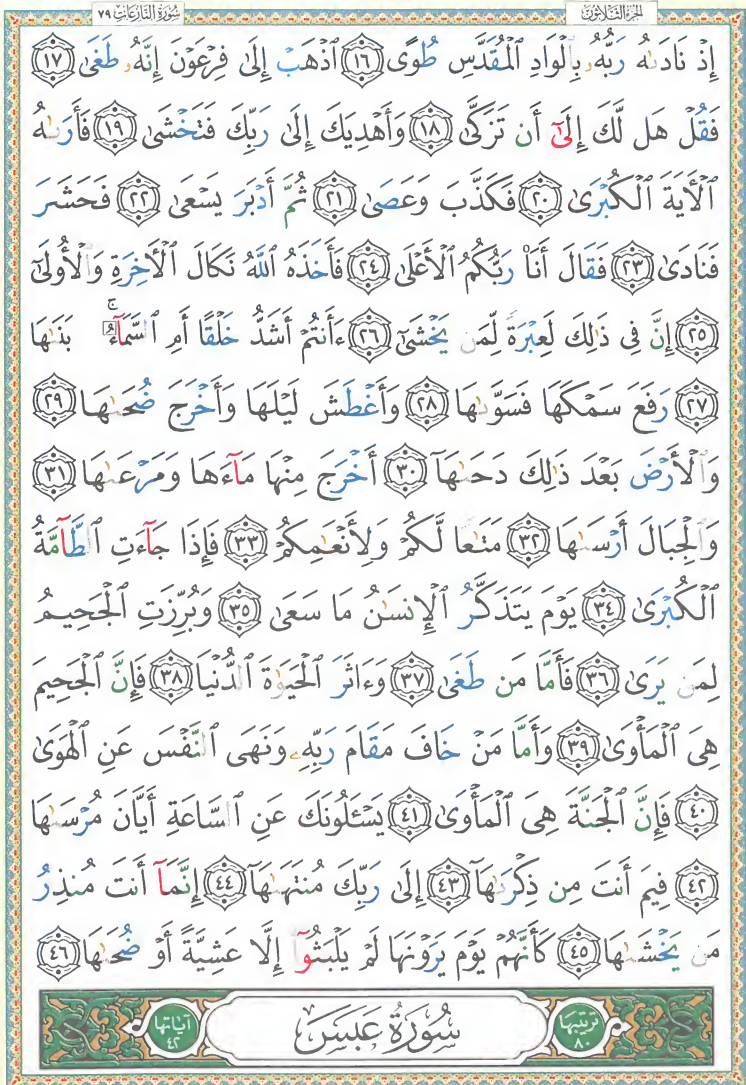 سُورَةُ النَّازِعَاتِ ٧٩ الجُزْءُ الثَّلَاثُونَ
إِذْ نَادَىٰهُ رَبُّهُۥ بِٱلْوَادِ ٱلْمُقَدَّسِ طُوًى ١٦ ٱذْهَبْ إِلَىٰ فِرْعَوْنَ إِنَّهُۥ طَغَىٰ ١٧
فَقُلْ هَل لَّكَ إِلَىٰٓ أَن تَزَكَّىٰ ١٨ وَأَهْدِيَكَ إِلَىٰ رَبِّكَ فَتَخْشَىٰ ١٩ فَأَرَىٰهُ
ٱلْأَيَةَ ٱلْكُبْرَىٰ ٢٠ فَكَذَّبَ وَعَصَىٰ ٢١ ثُمَّ أَدْبَرَ يَسْعَىٰ ٢٢ فَحَشَرَ
فَنَادَىٰ ٢٣ فَقَالَ أَنَا۠ رَبُّكُمُ ٱلْأَعْلَىٰ ٢٤ فَأَخَذَهُ ٱللَّهُ نَكَالَ ٱلْأَخِرَةِ وَٱلْأُولَىٰٓ
٢٥ إِنَّ فِى ذَٰلِكَ لَعِبْرَةً لِّمَن يَخْشَىٰٓ ٢٦ ءَأَنتُمْ أَشَدُّ خَلْقًا أَمِ ٱلسَّمَآءُ ۚ بَنَىٰهَا
٢٧ رَفَعَ سَمْكَهَا فَسَوَّىٰهَا ٢٨ وَأَغْطَشَ لَيْلَهَا وَأَخْرَجَ ضُحَىٰهَا ٢٩
وَٱلْأَرْضَ بَعْدَ ذَٰلِكَ دَحَىٰهَآ ٣٠ أَخْرَجَ مِنْهَا مَآءَهَا وَمَرْعَىٰهَا ٣١
وَٱلْجِبَالَ أَرْسَىٰهَا ٣٢ مَتَٰعًا لَّكُمْ وَلِأَنْعَٰمِكُمْ ٣٣ فَإِذَا جَآءَتِ ٱلطَّآمَّةُ
ٱلْكُبْرَىٰ ٣٤ يَوْمَ يَتَذَكَّرُ ٱلْإِنسَٰنُ مَا سَعَىٰ ٣٥ وَبُرِّزَتِ ٱلْجَحِيمُ
لِمَن يَرَىٰ ٣٦ فَأَمَّا مَن طَغَىٰ ٣٧ وَءَاثَرَ ٱلْحَيَوٰةَ ٱلدُّنْيَا ٣٨ فَإِنَّ ٱلْجَحِيمَ
هِىَ ٱلْمَأْوَىٰ ٣٩ وَأَمَّا مَنْ خَافَ مَقَامَ رَبِّهِۦ وَنَهَى ٱلنَّفْسَ عَنِ ٱلْهَوَىٰ
٤٠ فَإِنَّ ٱلْجَنَّةَ هِىَ ٱلْمَأْوَىٰ ٤١ يَسْـَٔلُونَكَ عَنِ ٱلسَّاعَةِ أَيَّانَ مُرْسَىٰهَا
٤٢ فِيمَ أَنتَ مِن ذِكْرَىٰهَآ ٤٣ إِلَىٰ رَبِّكَ مُنتَهَىٰهَآ ٤٤ إِنَّمَآ أَنتَ مُنذِرُ
مَن يَخْشَىٰهَا ٤٥ كَأَنَّهُمْ يَوْمَ يَرَوْنَهَا لَمْ يَلْبَثُوٓا۟ إِلَّا عَشِيَّةً أَوْ ضُحَىٰهَا ٤٦
ترتيبها ٨٠ سُورَةُ عَبَسَ آياتها ٤٢